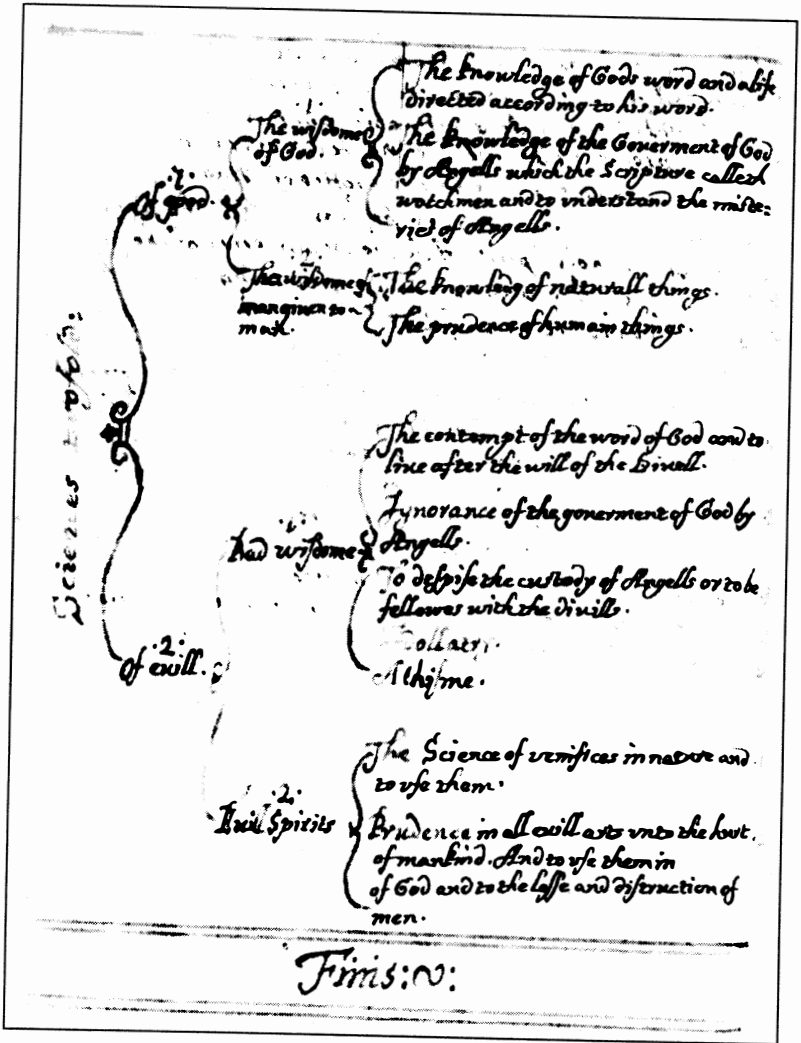 Sciences
.1.
Of good.
.1.
The wisdome
of God.
The knowledge of Gods word and a life
directed according to his word.
The knowledge of the Goverment of God
by Angells which the Scripture calleth
watchmen and to understand the miste:
ries of Angells.
.2.
The wisdome of
man given to
man.
The knowledg of naturall things.
The prudence of humain things.
.2.
Of evill.
.1.
Bad wisdome
The contempt of the word of God and to
live after the will of the Divell.
Ignorance of the goverment of God by
Angells.
To despise the custody of Angells or to be
fellowes with the divills.
Athisme.
.2.
Evil Spirits
The Science of venifices in nature and
to use them.
Prudence in all evill arts unto the hurt
of mankind. And to use them in
of God and to the losse and distruction of
men.
Finis: